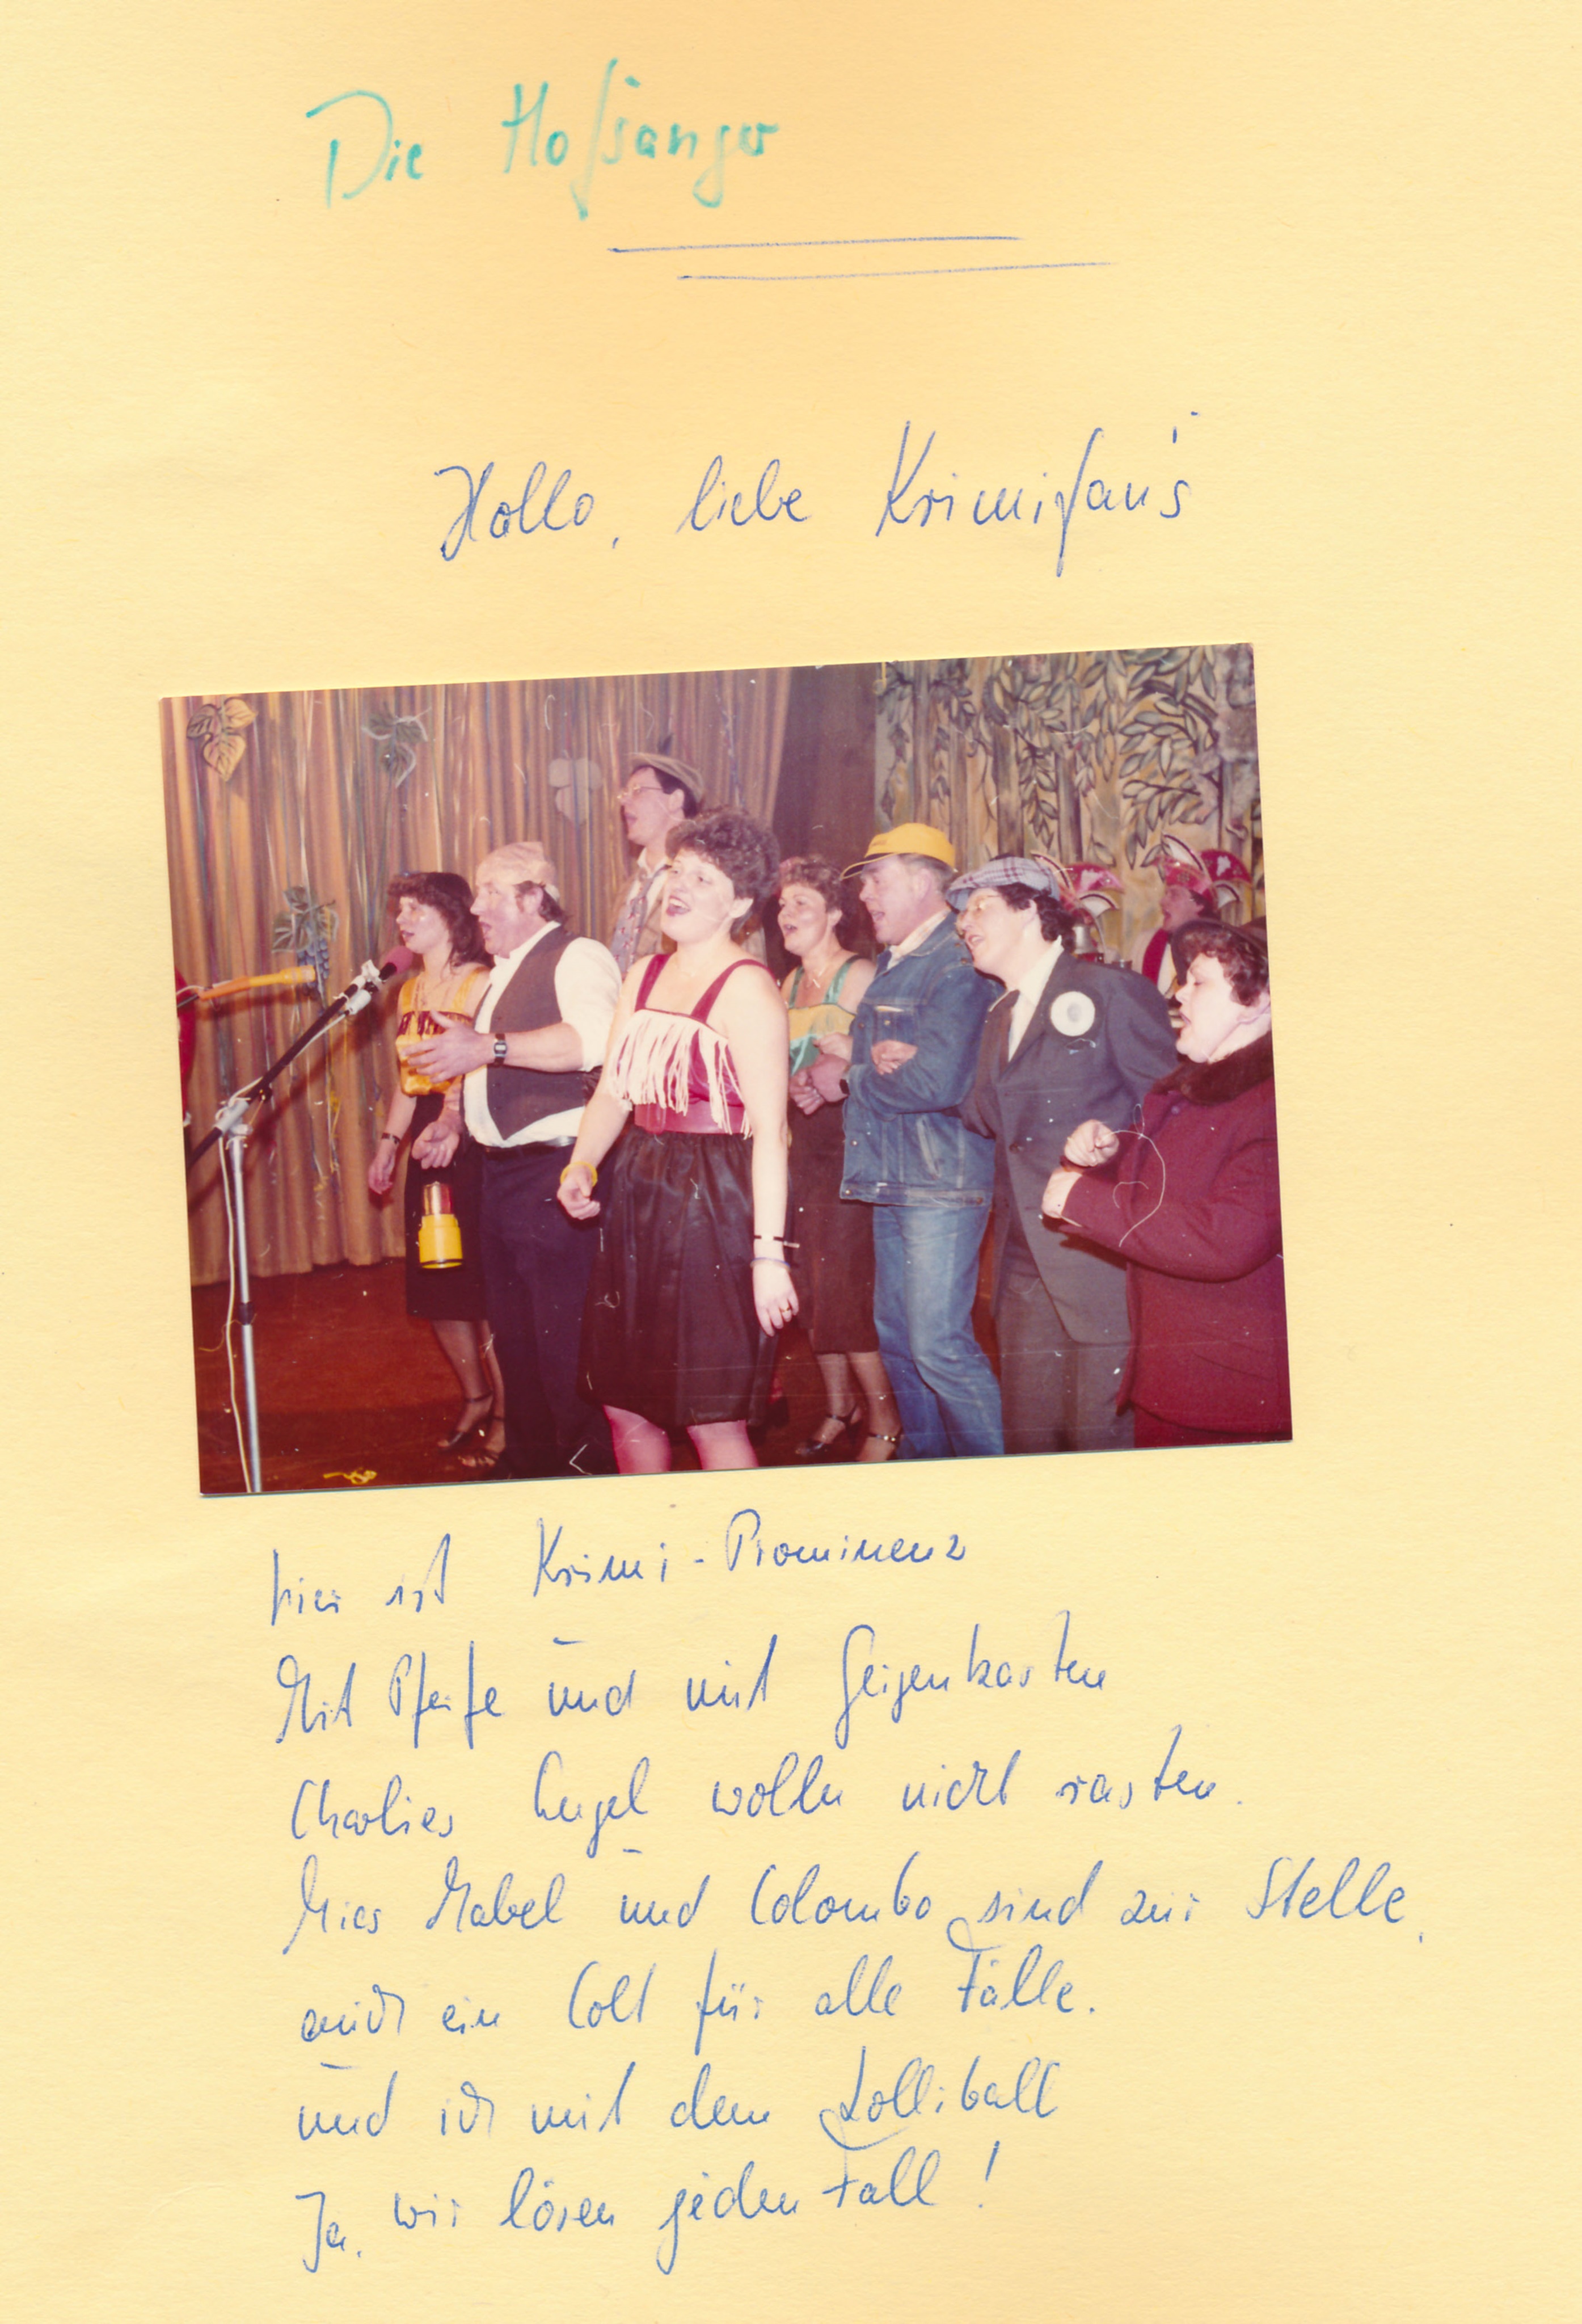 Die Hofsänger
Hallo, liebe Krimifan's
hier ist Krimi-Prominenz
Mit Pfeife und mit Geigenkasten
Charlies Engel wolln nicht rasten.
Mies Mabel und Colombo sind zur Stelle,
auch ein Colt für alle Fälle.
und ich mit dem Lolliball
Ja, wir lösen jeden Fall!